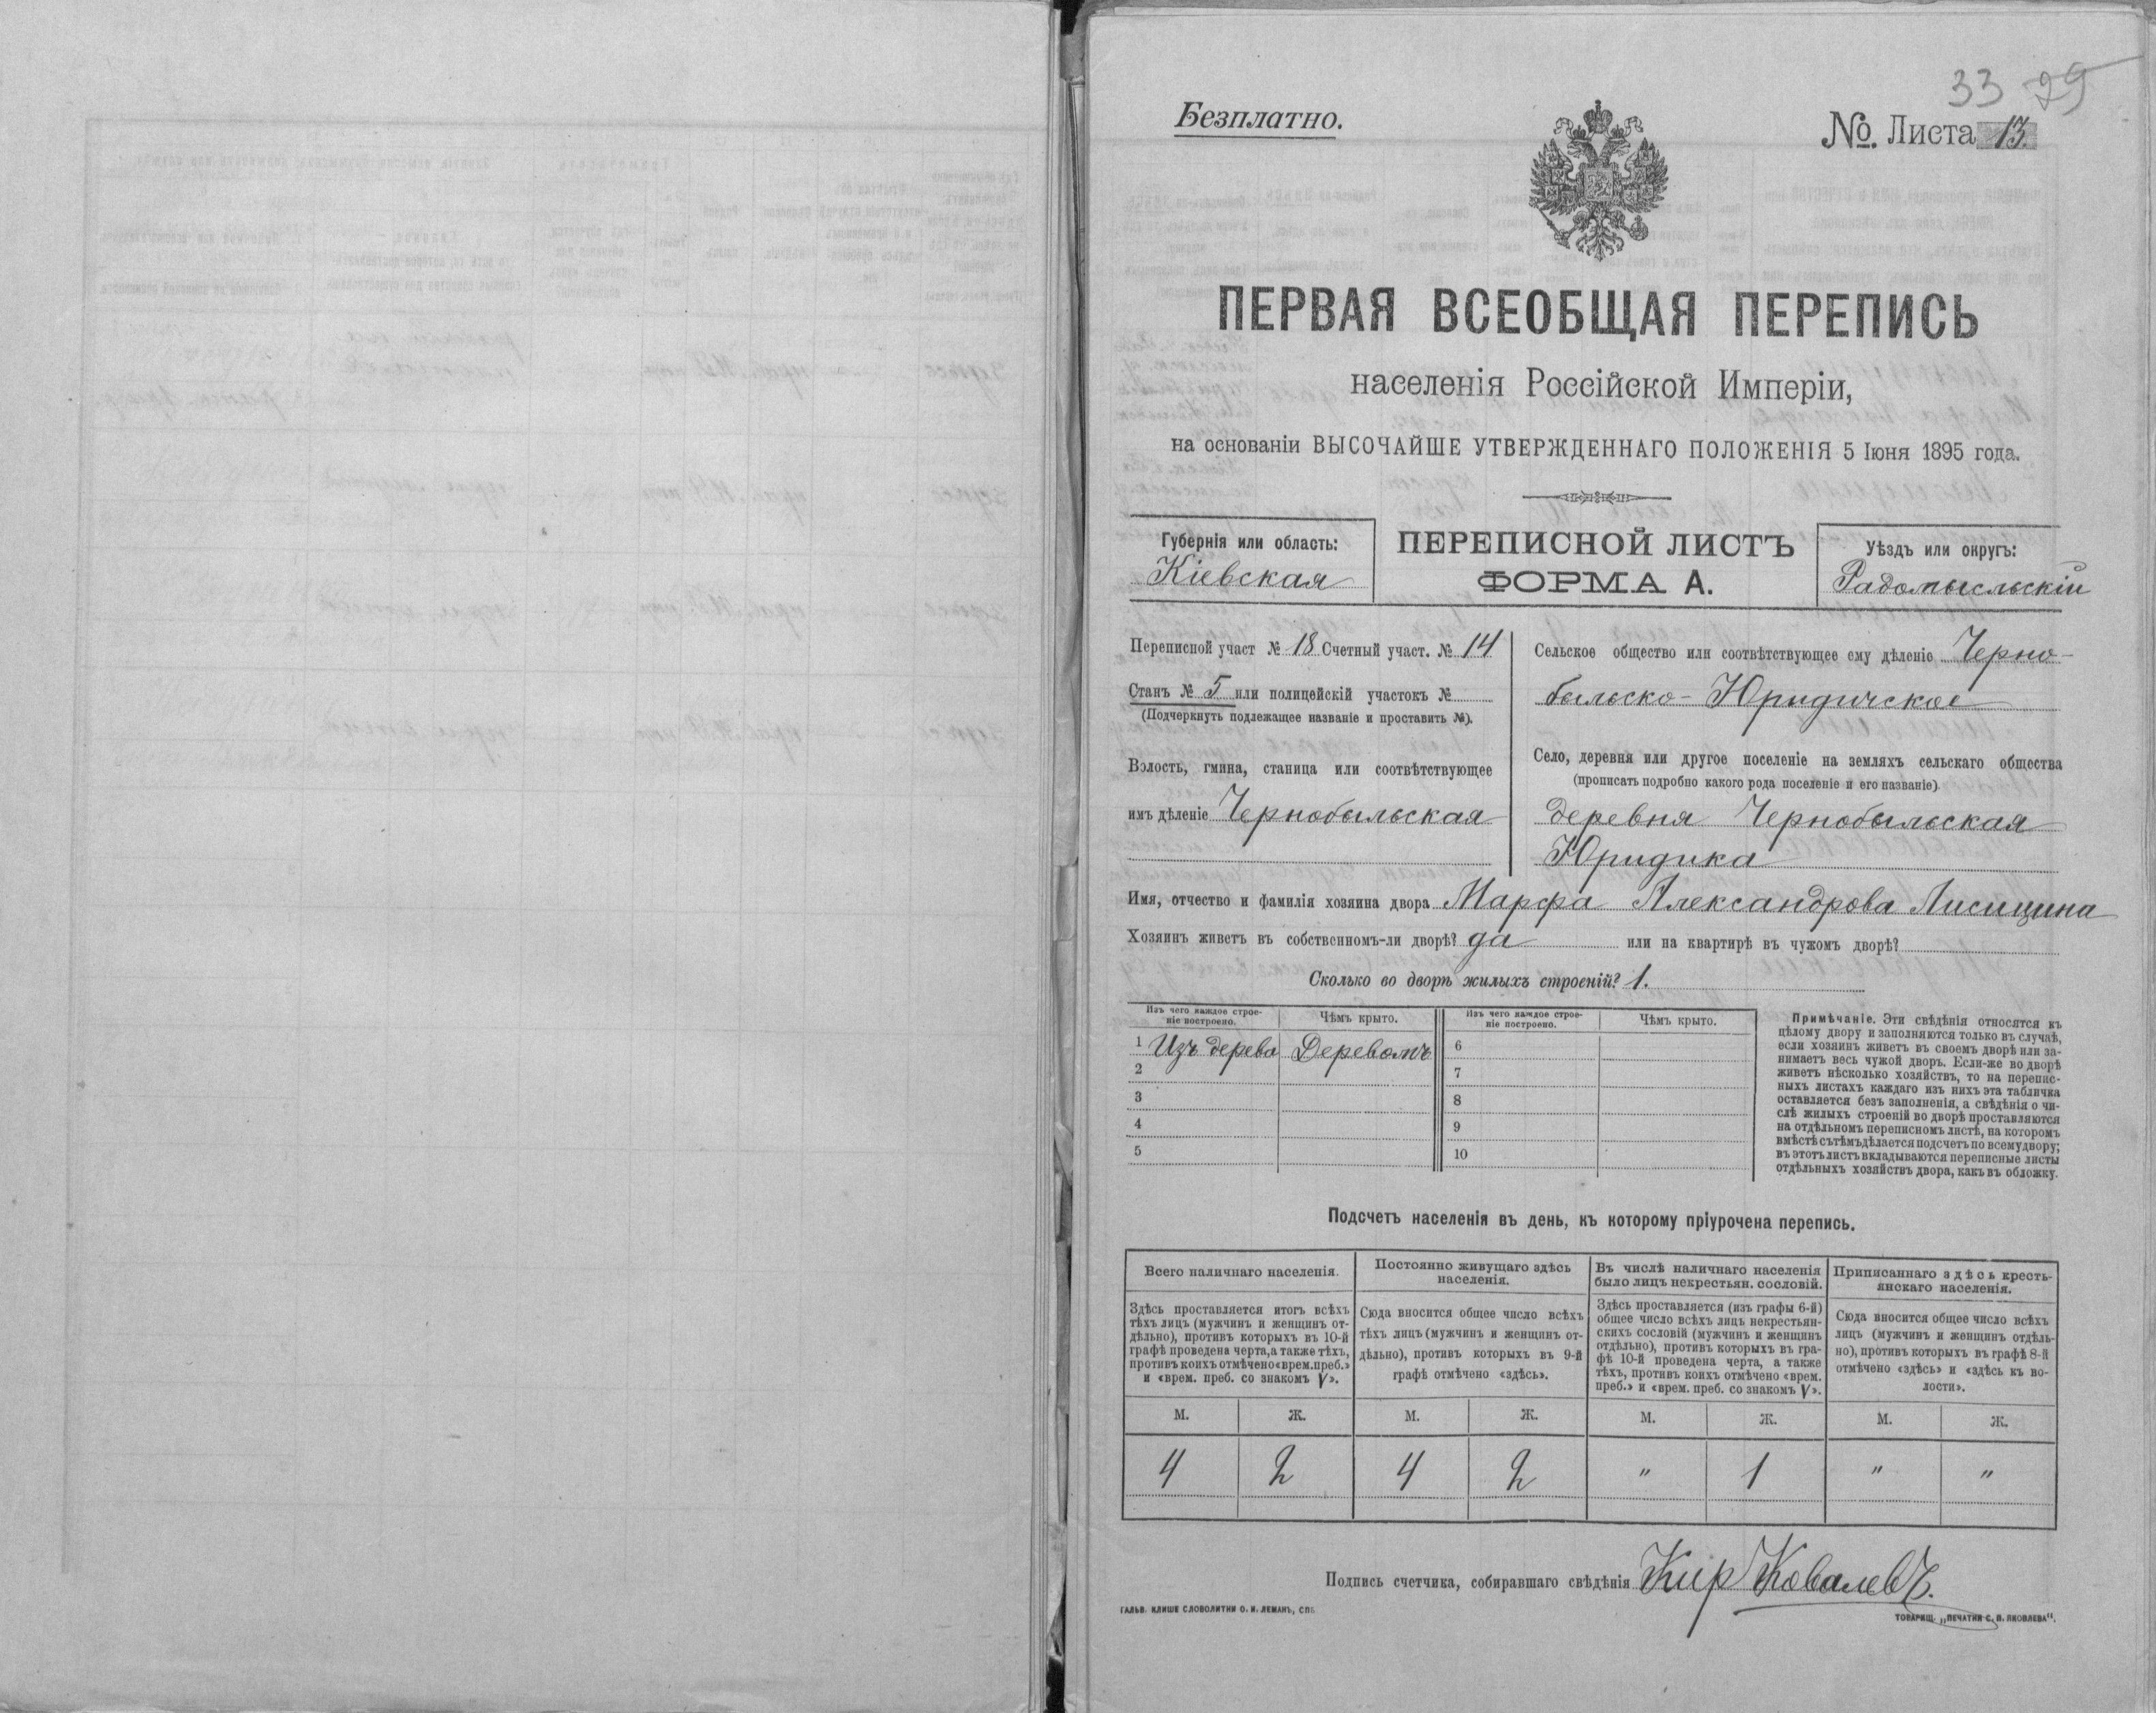 33 29
Безплатно.
№. Листа 13.
ПЕРВАЯ ВСЕОБЩАЯ ПЕРЕПИСЬ
населенія Россійской Имперіи,
на основаніи ВЫСОЧАЙШЕ УТВЕРЖДЕННАГО ПОЛОЖЕНІЯ 5 Іюня 1895 года.
Губернія или область:
Кіевская
ПЕРЕПИСНОЙ ЛИСТЪ
ФОРМА А.
Уѣздъ или округъ:
Радомысльскій
Переписной участ № 18 Счетный участ. № 14
Станъ № 5 или полицейскій участокъ №
(Подчеркнуть подлежащее названіе и проставить №).
Волость, гмина, станица или соотвѣтствующее
имъ дѣленіе Чернобыльская
Сельское общество или соотвѣтствующее ему дѣленіе Черно-
быльско-Юридическое
Село, деревня или другое поселеніе на земляхъ сельскаго общества
(прописать подробно какого рода поселеніе и его названіе).
деревня Чернобыльская
Юридика
Имя, отчество и фамилія хозяина двора Марфа Александрова Лисицина
Хозяинъ живетъ въ собственномъ-ли дворѣ? да или на квартирѣ въ чужомъ дворѣ?
Сколько во дворѣ жилыхъ строеній? 1.
Изъ чего каждое строе-
ніе построено.
Чѣмъ крыто.
Изъ чего каждое строе-
ніе построено.
Чѣмъ крыто.
1 Изъ дерева Деревомъ 6
2 7
3 8
4 9
5 10
Примѣчаніе. Эти свѣдѣнія относятся къ
цѣлому двору и заполняются только въ случаѣ,
если хозяинъ живетъ въ своемъ дворѣ или за-
нимаетъ весь чужой дворъ. Если-же во дворѣ
живетъ нѣсколько хозяйствъ, то на перепис-
ныхъ листахъ каждаго изъ нихъ эта табличка
оставляется безъ заполненія, а свѣдѣнія о чи-
слѣ жилыхъ строеній во дворѣ проставляются
на отдѣльномъ переписномъ листѣ, на которомъ
вмѣстѣ съ тѣмъ дѣлается подсчетъ по всему двору;
въ этотъ листъ вкладываются переписные листы
отдѣльныхъ хозяйствъ двора, какъ въ обложку.
Подсчетъ населенія въ день, къ которому пріурочена перепись.
Всего наличнаго населенія.
Здѣсь проставляется итогъ всѣхъ
тѣхъ лицъ (мужчинъ и женщинъ от-
дѣльно), противъ которыхъ въ 10-й
графѣ проведена черта, а также тѣхъ,
противъ коихъ отмѣчено «врем. преб.»
и «врем. преб. со знакомъ V».
Постоянно живущаго здѣсь
населенія.
Сюда вносится общее число всѣхъ
тѣхъ лицъ (мужчинъ и женщинъ от-
дѣльно), противъ которыхъ въ 9-й
графѣ отмѣчено «здѣсь».
Въ числѣ наличнаго населенія
было лицъ некрестьян. сословій.
Здѣсь проставляется (изъ графы 6-й)
общее число всѣхъ лицъ некрестьян-
скихъ сословій (мужчинъ и женщинъ
отдѣльно), противъ которыхъ въ гра-
фѣ 10-й проведена черта, а также
тѣхъ, противъ коихъ отмѣчено «врем.
преб.» и «врем. преб. со знакомъ V».
Приписаннаго здѣсь кресть-
янскаго населенія.
Сюда вносится общее число всѣхъ
лицъ (мужчинъ и женщинъ отдѣль-
но), противъ которыхъ въ графѣ 8-й
отмѣчено «здѣсь» и «здѣсь къ во-
лости».
М. Ж. М. Ж. М. Ж. М. Ж.
4 2 4 2 " 1 " "
Подпись счетчика, собиравшаго свѣдѣнія Кир Ковалевъ.
ГАЛЬВ. КЛИШЕ СЛОВОЛИТНИ О. И. ЛЕМАНЪ, СПБ
ТОВАРИЩ. „ПЕЧАТНЯ С. П. ЯКОВЛЕВА".